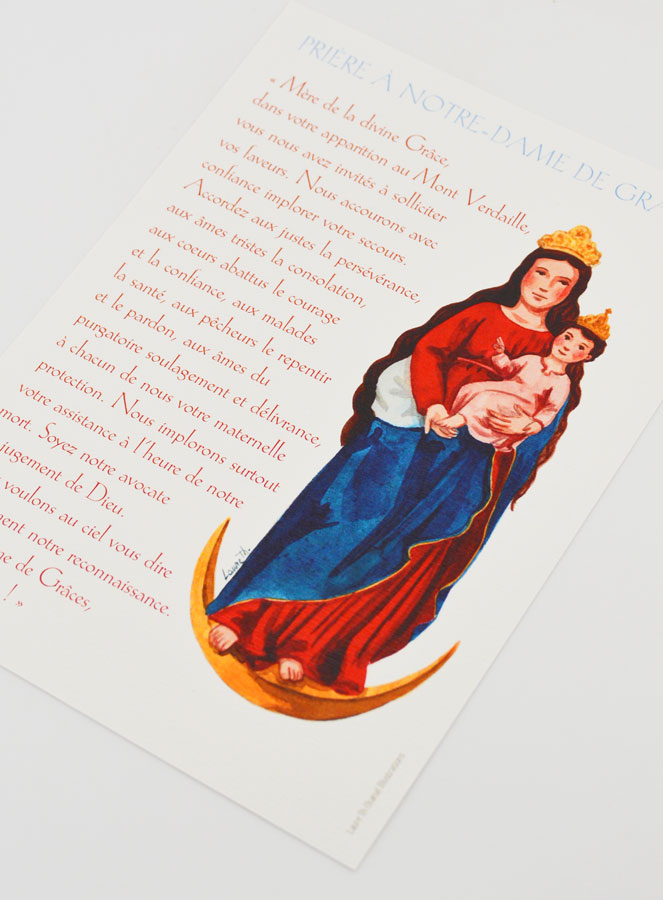 PRIÈRE À NOTRE-DAME DE GRA
« Mère de la divine Grâce,
dans votre apparition au Mont Verdaille,
vous nous avez invités à solliciter
vos faveurs. Nous accourons avec
confiance implorer votre secours.
Accordez aux justes la persévérance,
aux âmes tristes la consolation,
aux coeurs abattus le courage
et la confiance, aux malades
la santé, aux pêcheurs le repentir
et le pardon, aux âmes du
purgatoire soulagement et délivrance,
à chacun de nous votre maternelle
protection. Nous implorons surtout
votre assistance à l'heure de notre
mort. Soyez notre avocate
jugement de Dieu.
voulons au ciel vous dire
ment notre reconnaissance.
de Grâces,
! »
Laure Th.